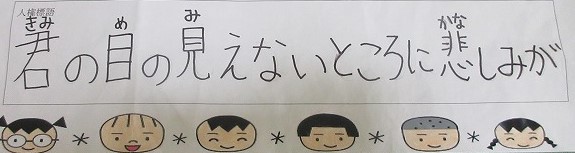 人権標語
きみ め み かな
君の目の見えないところに悲しみが